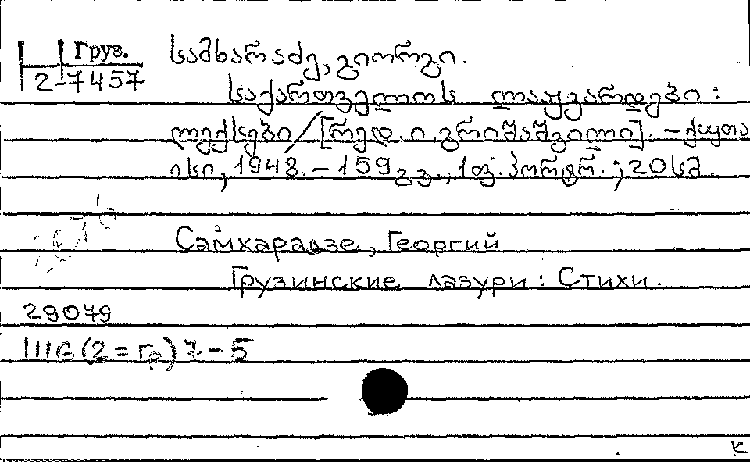 Груз.
2-7457
სამხარაძე, გიორგი.
საქართველოს ლაჟვარდები :
ლექსები / [რედ. ი. გრიშაშვილი]. – ქუთა
ისი, 1948. – 159 გვ., 1 ფ. პორტრ. ; 20 სმ.
Самхарадзе, Георгий
Грузинские лазури : Стихи.
29079
Ш6(2=Гр)7-5
к